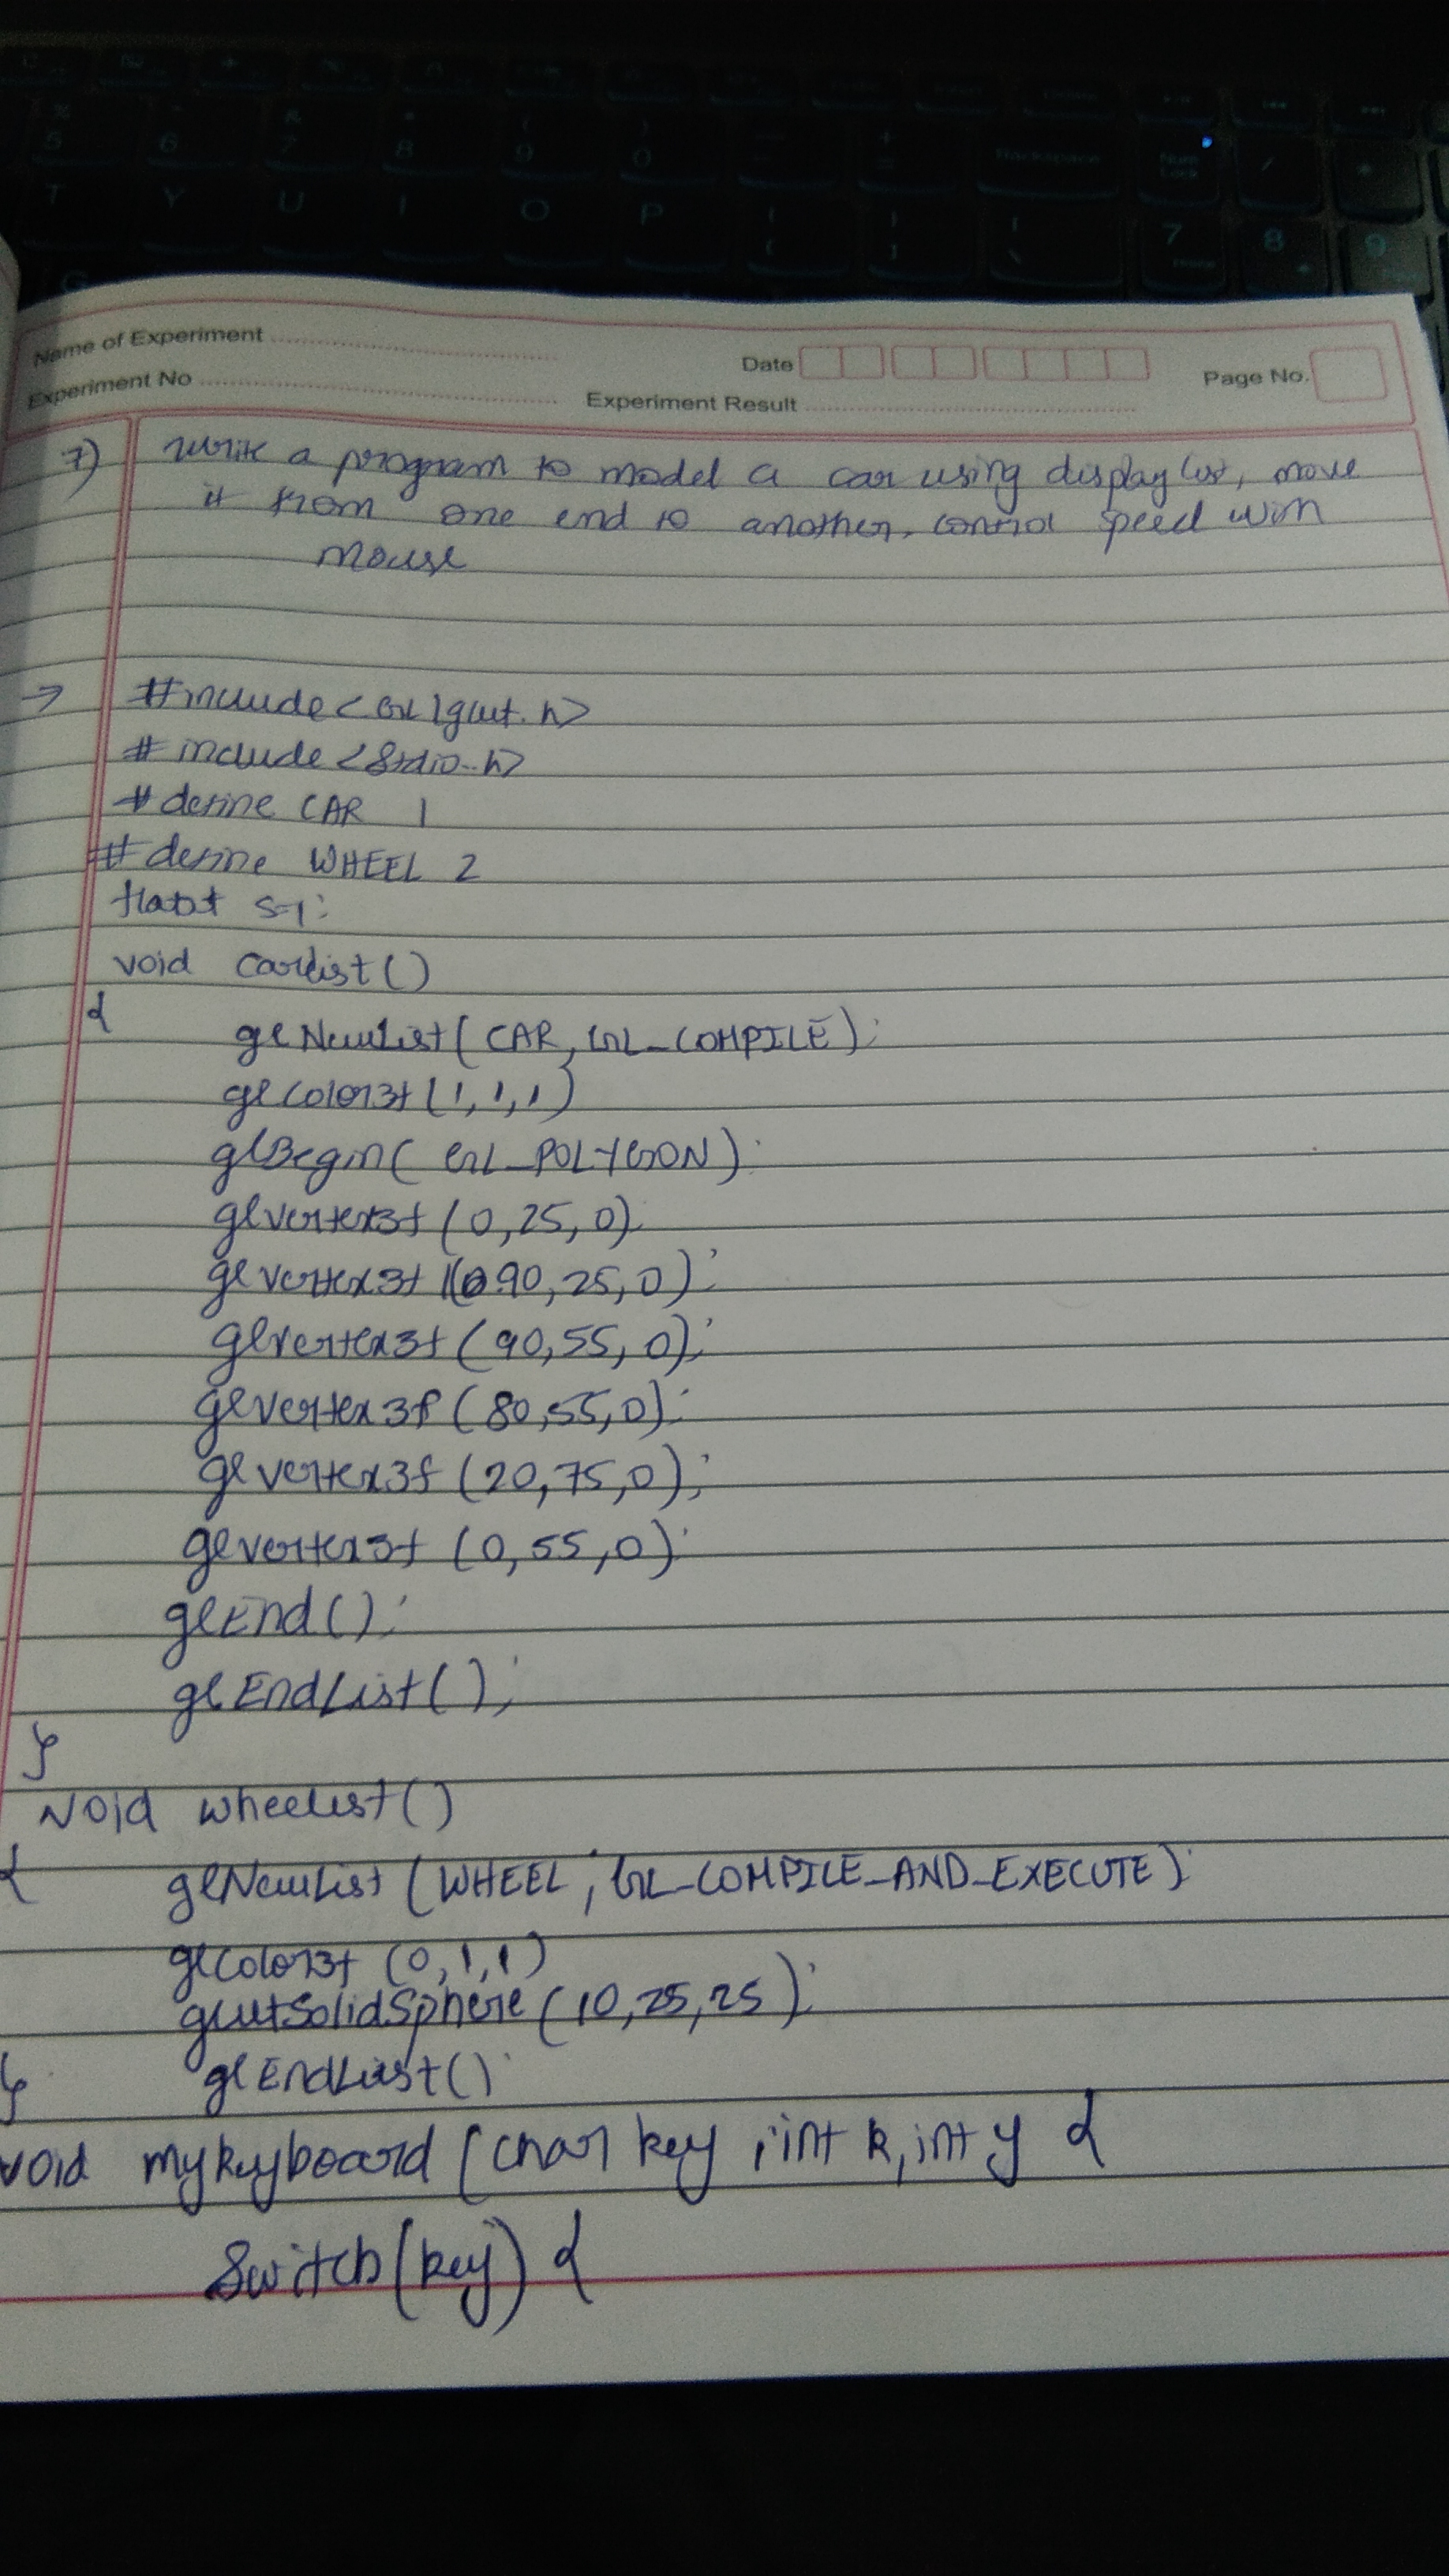 Name of Experiment
Date
Page No.
Experiment No
Experiment Result
7) Write a program to model a car using display list, move
it from one end to another, control speed with
mouse
→ #include<GL/glut.h>
# include <stdio.h>
# define CAR 1
# define WHEEL 2
float s=1;
void carlist()
{
glNewList(CAR, GL_COMPILE);
glColor3f(1,1,1)
glBegin( GL_POLYGON);
glvertex3f (0,25,0)
glvertex3f (90,25,0);
glvertex3f (90,55,0);
glvertex3f (80,55,0);
glvertex3f (20,75,0);
glvertex3f (0,55,0);
glEnd();
glEndList();
}
void wheellist()
{ glNewList (WHEEL, GL_COMPILE_AND_EXECUTE);
glColor3f (0,1,1)
glutSolidSphere (10,25,25);
} glEndList();
void mykeyboard (char key, int k, int y {
Switch(key) {
5 6 7 8 9 0
Backspace
Num Lock
T Y U I O P
7 8 9